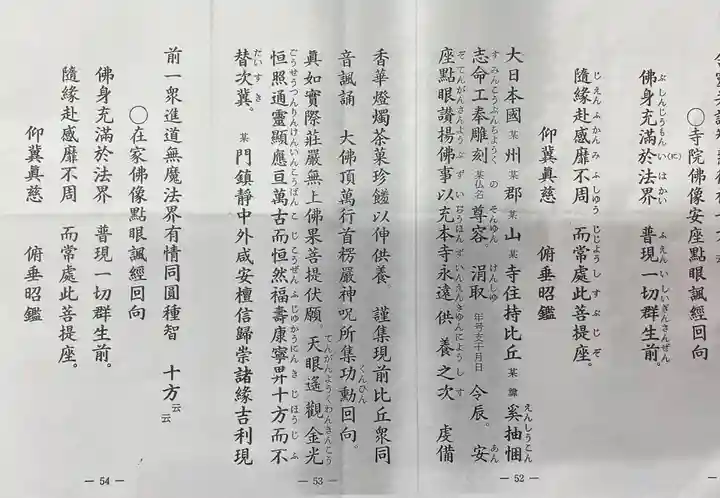 ○寺院佛像安座點眼諷經回向
佛身充滿於法界　普現一切群生前。
隨緣赴感靡不周　而常處此菩提座。
仰冀眞慈　俯垂昭鑑
大日本國 某 州 某 郡 某 山 某 寺住持比丘 某 諱 奚抽悃
志命工奉雕刻 某仏名 尊容。涓取 年号支干月日 令辰。安
座點眼讃揚佛事以充本寺永遠供養之次　虔備
— 52 —
香華燈燭茶菓珍饈以伸供養　謹集現前比丘衆同
音諷誦　大佛頂萬行首楞嚴神呪所集功勳回向。
眞如實際莊嚴無上佛果菩提伏願　天眼遙觀金光
恒照通靈顯應亘萬古而恒然福壽康寧畀十方而不
替次冀。 某 門鎮靜中外咸安檀信歸崇諸緣吉利現
— 53 —
前一衆進道無魔法界有情同圓種智　十方云云
○在家佛像點眼諷經回向
佛身充滿於法界　普現一切群生前。
隨緣赴感靡不周　而常處此菩提座。
仰冀眞慈　俯垂昭鑑
— 54 —